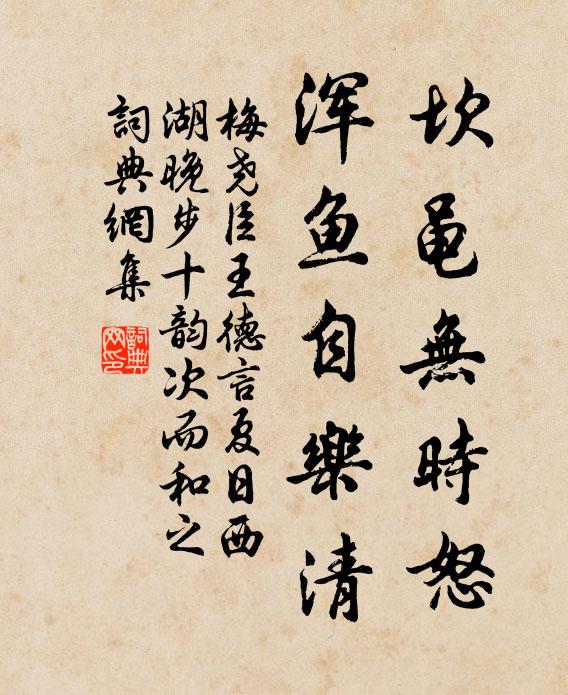 坎黾無時怒
浑鱼自樂清
梅尧臣王德言夏日西
湖晚步十韵次而和之
詞典網集
詞典网印